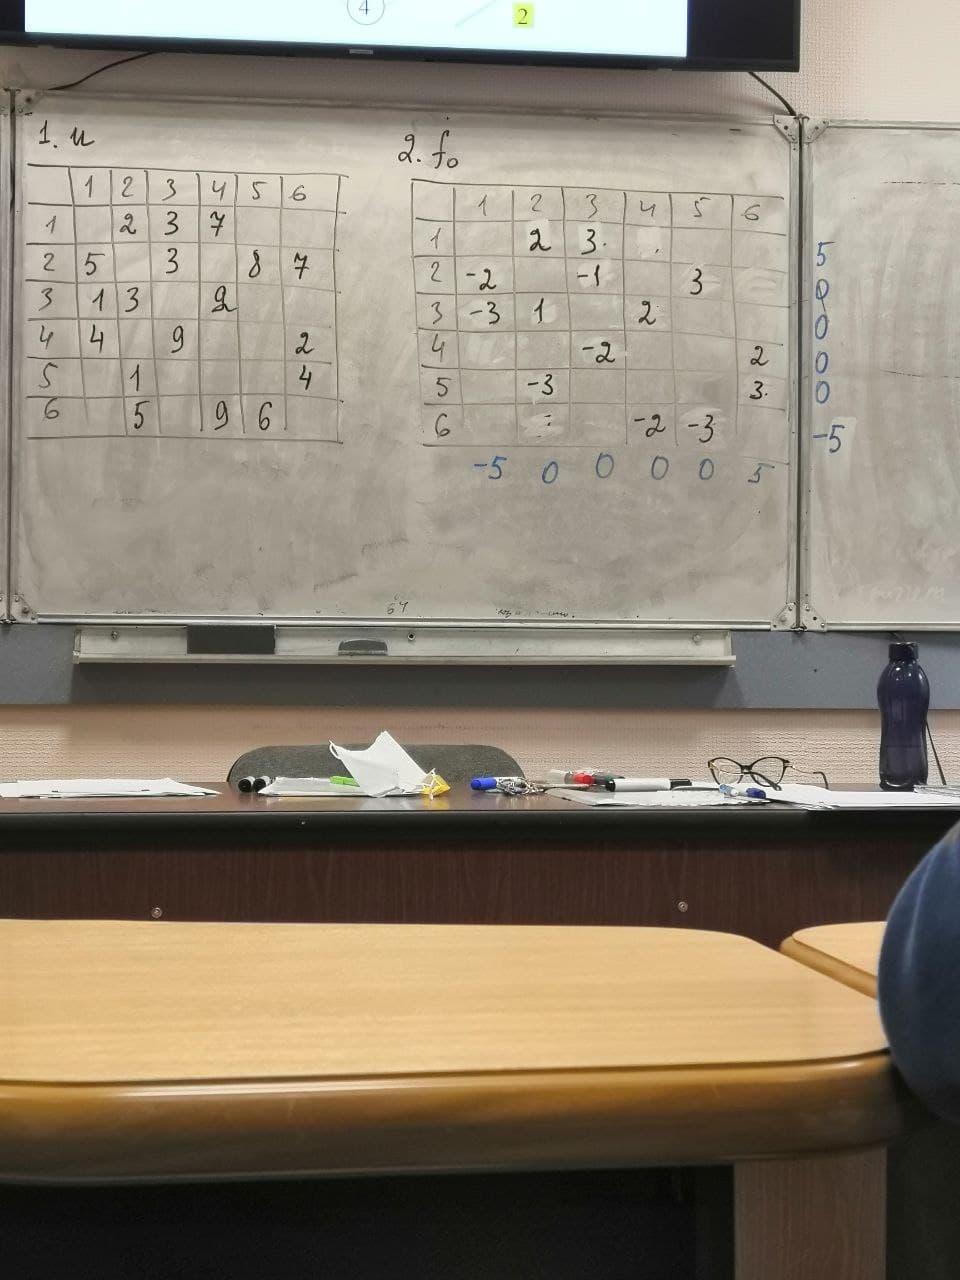 4
2
1. u
1 2 3 4 5 6
1 2 3 7
2 5 3 8 7
3 1 3 2
4 4 9 2
5 1 4
6 5 9 6
2. f₀
1 2 3 4 5 6
1 2 3. 5
2 -2 -1 3 0
3 -3 1 2 0
4 -2 2 0
5 -3 3. 0
6 -2 -3 -5
-5 0 0 0 0 5
64